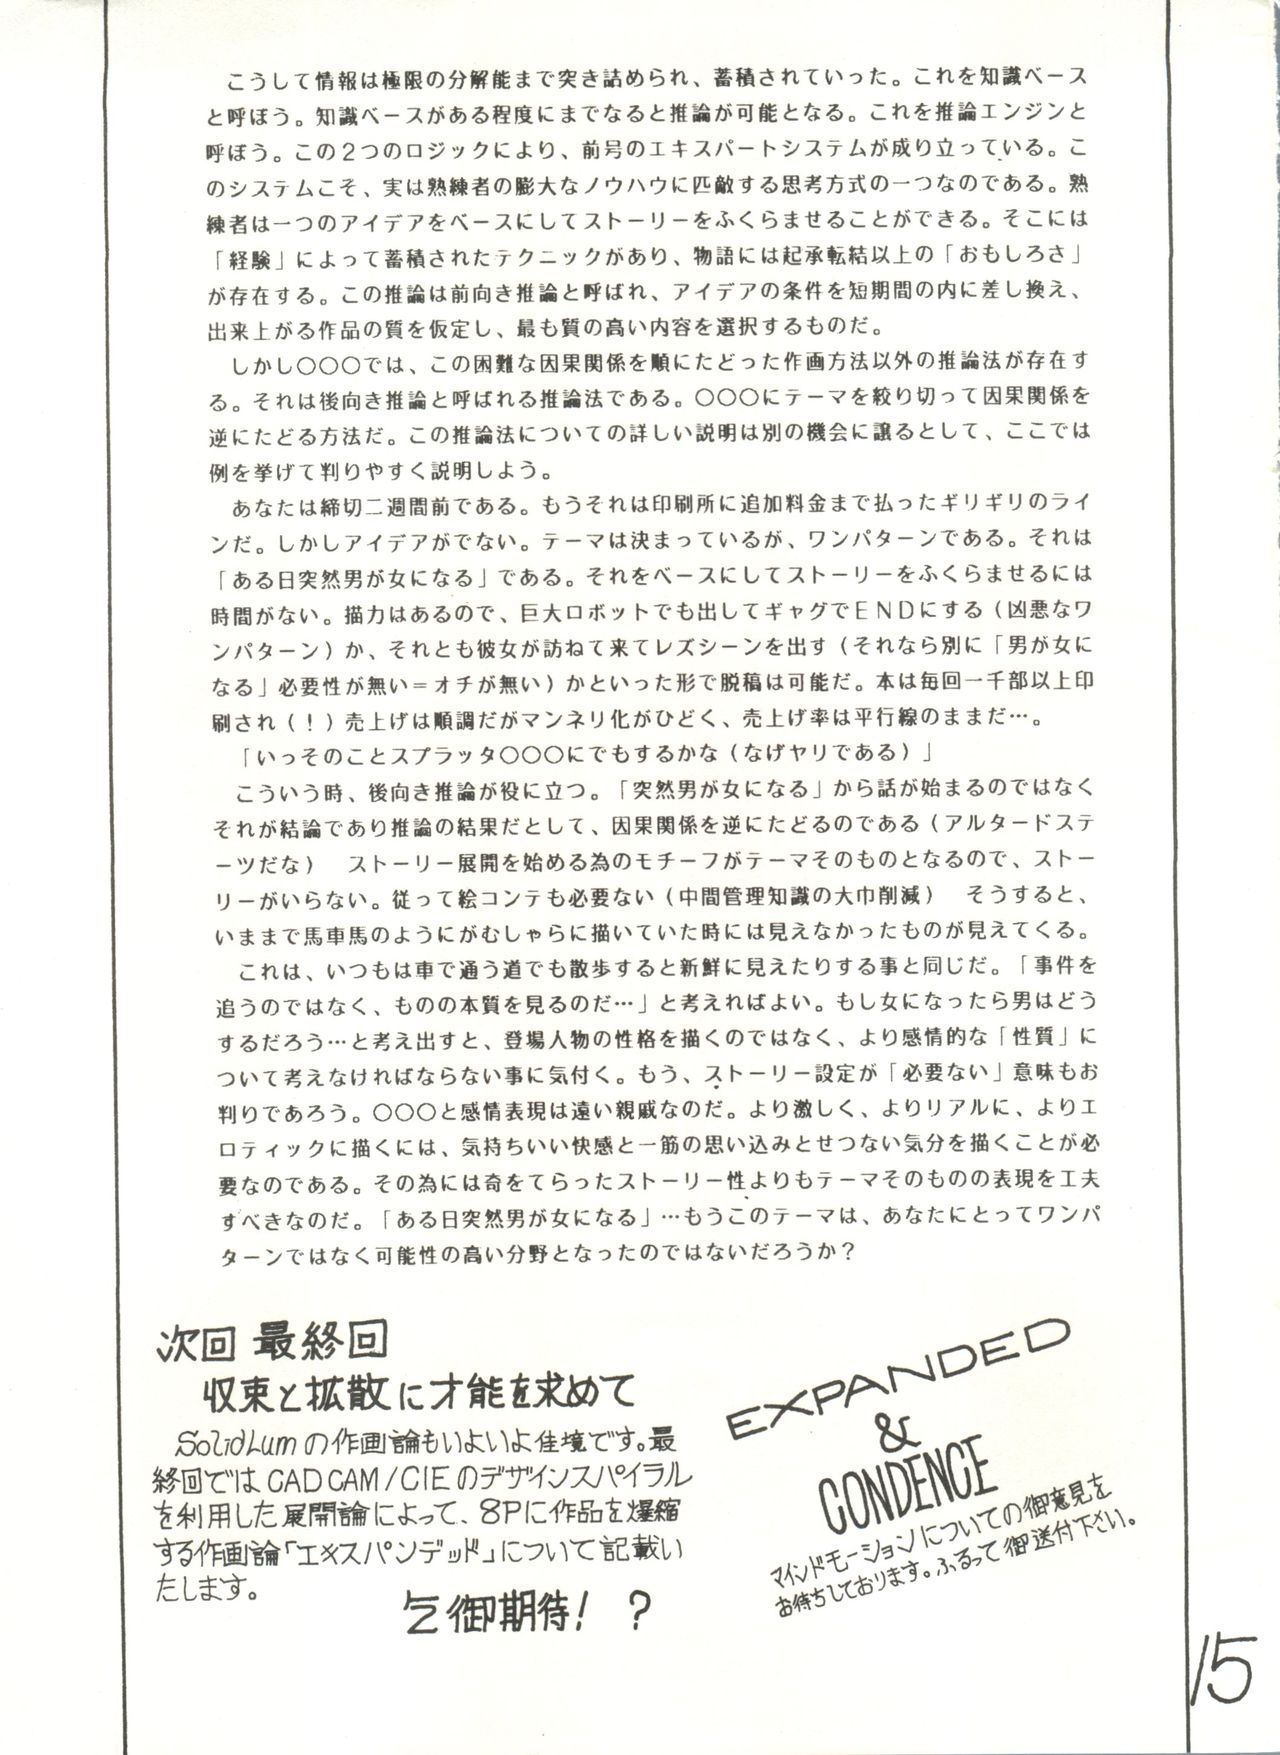 こうして情報は極限の分解能まで突き詰められ、蓄積されていった。これを知識ベース
と呼ぼう。知識ベースがある程度にまでなると推論が可能となる。これを推論エンジンと
呼ぼう。この2つのロジックにより、前号のエキスパートシステムが成り立っている。こ
のシステムこそ、実は熟練者の膨大なノウハウに匹敵する思考方式の一つなのである。熟
練者は一つのアイデアをベースにしてストーリーをふくらませることができる。そこには
「経験」によって蓄積されたテクニックがあり、物語には起承転結以上の「おもしろさ」
が存在する。この推論は前向き推論と呼ばれ、アイデアの条件を短期間の内に差し換え、
出来上がる作品の質を仮定し、最も質の高い内容を選択するものだ。
しかし〇〇〇では、この困難な因果関係を順にたどった作画方法以外の推論法が存在す
る。それは後向き推論と呼ばれる推論法である。〇〇〇にテーマを絞り切って因果関係を
逆にたどる方法だ。この推論法についての詳しい説明は別の機会に譲るとして、ここでは
例を挙げて判りやすく説明しよう。
あなたは締切二週間前である。もうそれは印刷所に追加料金まで払ったギリギリのライ
ンだ。しかしアイデアがでない。テーマは決まっているが、ワンパターンである。それは
「ある日突然男が女になる」である。それをベースにしてストーリーをふくらませるには
時間がない。描力はあるので、巨大ロボットでも出してギャグでENDにする(凶悪なワ
ンパターン)か、それとも彼女が訪ねて来てレズシーンを出す(それなら別に「男が女に
なる」必要性が無い=オチが無い)かといった形で脱稿は可能だ。本は毎回一千部以上印
刷され(!)売上げは順調だがマンネリ化がひどく、売上げ率は平行線のままだ…。
「いっそのことスプラッタ〇〇〇にでもするかな(なげヤリである)」
こういう時、後向き推論が役に立つ。「突然男が女になる」から話が始まるのではなく
それが結論であり推論の結果だとして、因果関係を逆にたどるのである(アルタードステ
ーツだな) ストーリー展開を始める為のモチーフがテーマそのものとなるので、ストー
リーがいらない。従って絵コンテも必要ない(中間管理知識の大巾削減) そうすると、
いままで馬車馬のようにがむしゃらに描いていた時には見えなかったものが見えてくる。
これは、いつもは車で通う道でも散歩すると新鮮に見えたりする事と同じだ。「事件を
追うのではなく、ものの本質を見るのだ…」と考えればよい。もし女になったら男はどう
するだろう…と考え出すと、登場人物の性格を描くのではなく、より感情的な「性質」に
ついて考えなければならない事に気付く。もう、ストーリー設定が「必要ない」意味もお
判りであろう。〇〇〇と感情表現は遠い親戚なのだ。より激しく、よりリアルに、よりエ
ロティックに描くには、気持ちいい快感と一筋の思い込みとせつない気分を描くことが必
要なのである。その為には奇をてらったストーリー性よりもテーマそのものの表現を工夫
すべきなのだ。「ある日突然男が女になる」…もうこのテーマは、あなたにとってワンパ
ターンではなく可能性の高い分野となったのではないだろうか?
次回 最終回
収束と拡散に才能を求めて
SolidLumの作画論もいよいよ佳境です。最
終回ではCADCAM/CIEのデザインスパイラル
を利用した展開論によって、8Pに作品を爆縮
する作画論「エキスパンデッド」について記載い
たします。
乞御期待! ?
EXPANDED
&
CONDENCE
マインドモーションについての御意見を
お待ちしております。ふるって御送付下さい。
15